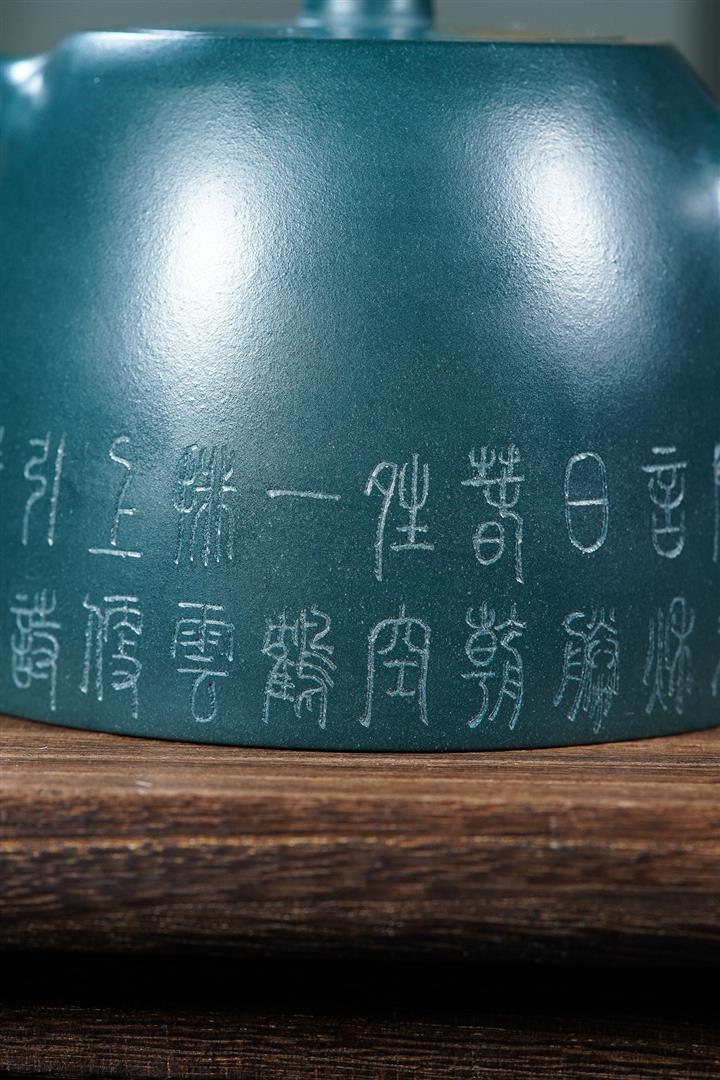 言秋
日勝
春朝
晴空
一鶴
排雲
上便
引詩